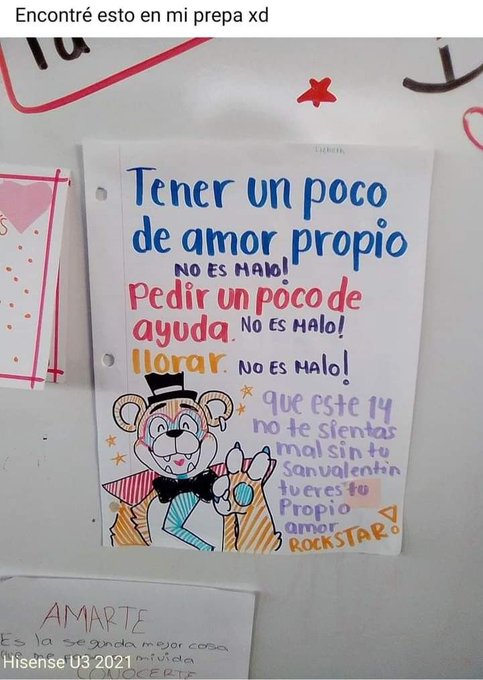 Encontré esto en mi prepa xd
Lizbeth
Tener un poco
de amor propio
NO ES MALO!
Pedir un poco de
ayuda. NO ES MALO!
llorar. NO ES MALO!
que este 14
no te sientas
mal sin tu
san valentin
tu eres tu
Propio
amor
ROCKSTAR!
AMARTE
Es la segunda mejor cosa
mi vida
CONOCERTE
Hisense U3 2021